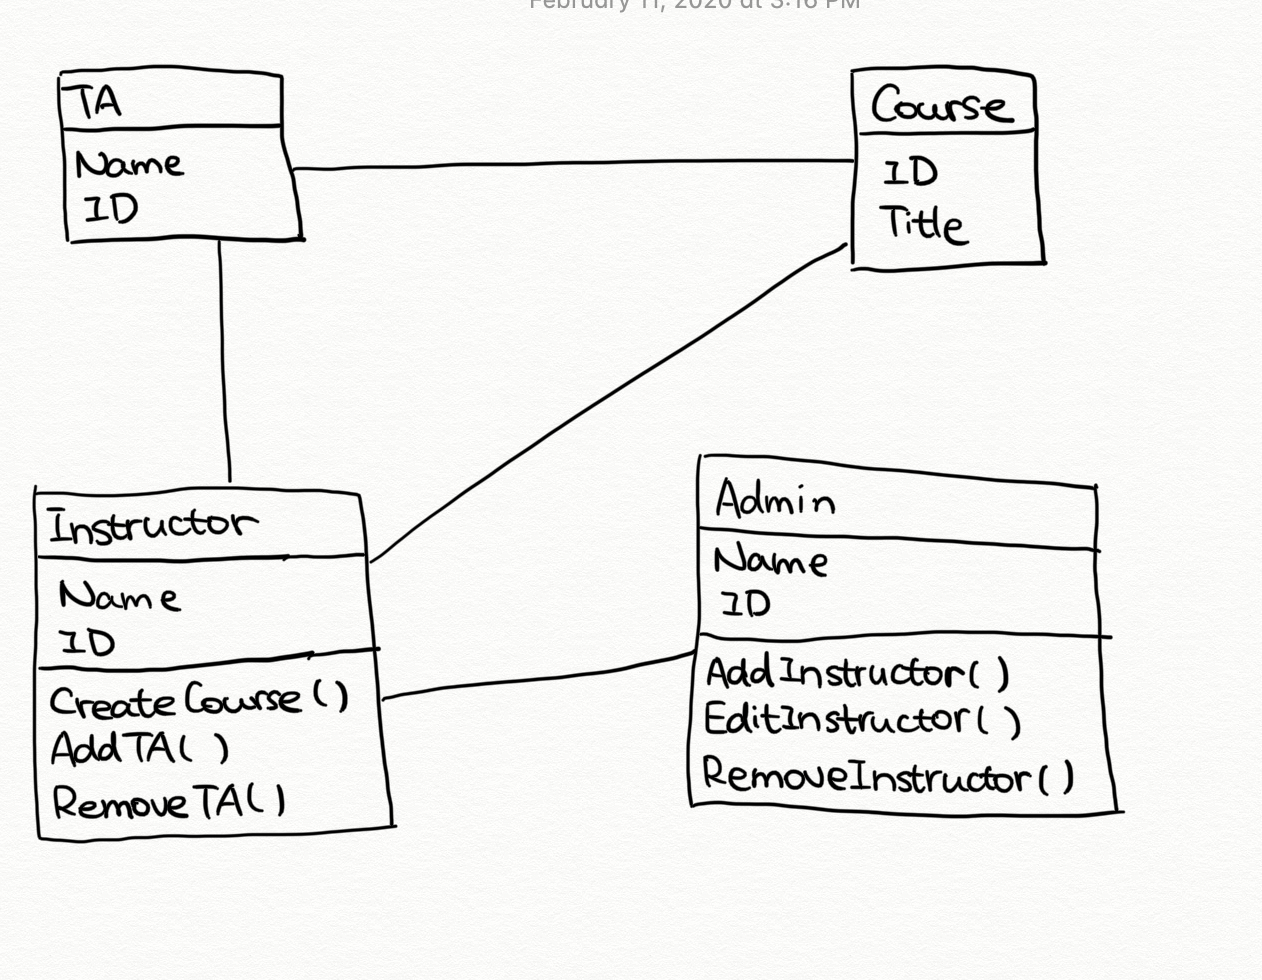 February 11, 2020 at 3:16 PM
TA
Name
ID
Course
ID
Title
Instructor
Name
ID
CreateCourse()
AddTA( )
RemoveTA()
Admin
Name
ID
AddInstructor( )
EditInstructor( )
RemoveInstructor( )